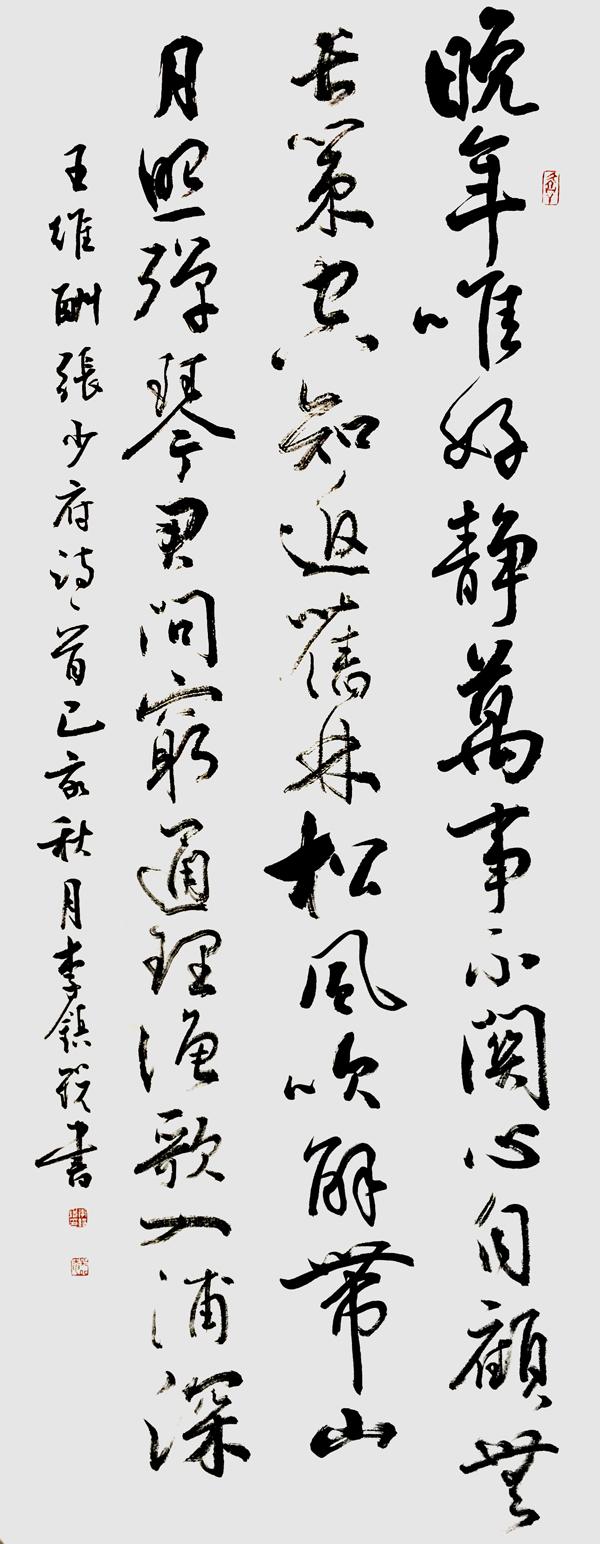 晚年唯好静萬事不關心自顧無
長策空知返舊林松風吹解帶山
月照彈琴君問窮通理漁歌入浦深
王維酬張少府诗一首己亥秋月李鎮書